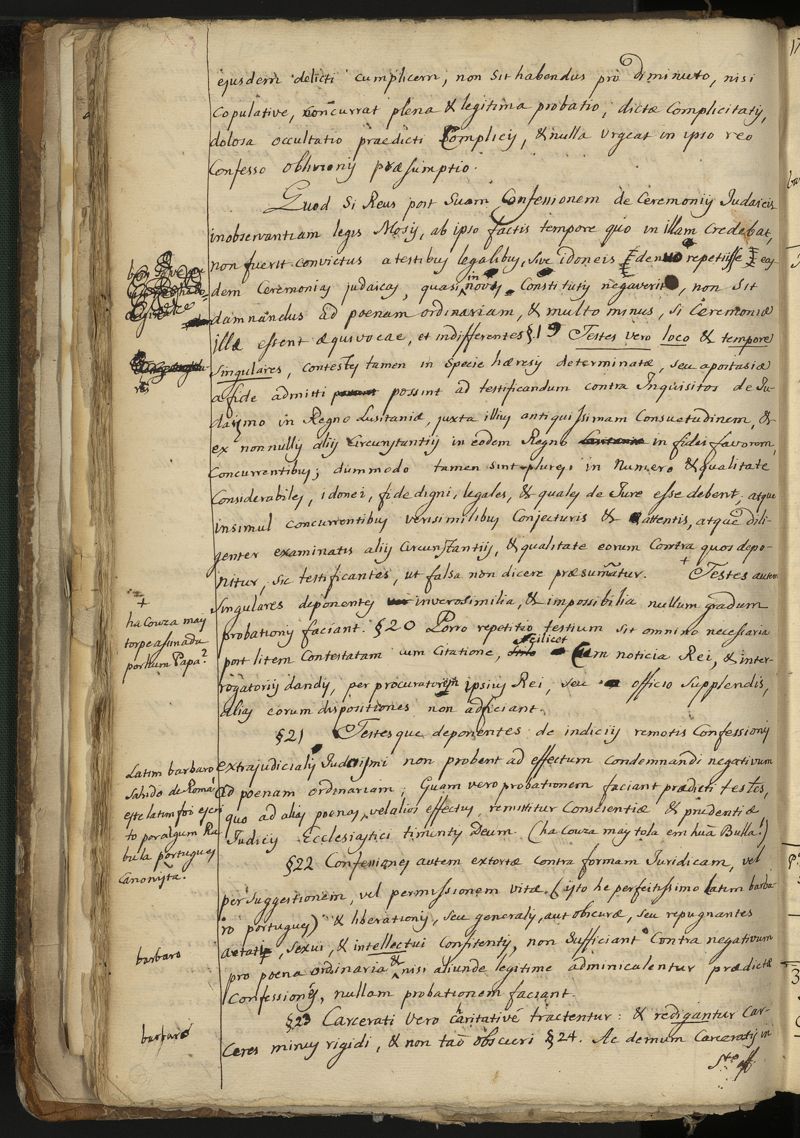 ejusdem delicti cumplicem, non sit habendus pro diminuto, nisi
copulative, concurrat plena & legitima probatio, dictæ complicitatis,
dolosa occultatio prædicti Complicis, & nulla vrgeat in ipso reo
Confesso oblivionis præsumptio.
Quod si Reus post Suam Confessionem de Ceremonijs Judaicis
inobservantiam legis Mosis, ab ipso factis tempore quo in illam credebat,
non fuerit convictus a testibus legalibus, sive idoneis denuo repetiisse eas
dem Ceremonias judaicas, quasi in novis Constitutis negaverit, non sit
damnandus ad poenam ordinariam, & multo minus, si Ceremoniæ
illæ essent æquivocae, et indifferentes §19 Testes vero loco & tempore
Singulares, contestes tamen in specie hæresis determinatæ, seu apostasiæ
a fide admitti possint ad testificandum contra Inquisitos de Ju-
daismo in Regno Lusitaniæ, juxta illius antiquissimam Consuetudinem, &
ex nonnullis aliis circunstantiis in eodem Regno in fidei favorem,
Concurrentibus; dummodo tamen sint plures in numero & qualitate
Considerabiles, idonei, fide digni, legales, & quales de Jure esse debent, atque
insimul concurrentibus verisimilibus Conjecturis & attentis, atque dili-
genter examinatis aliis circunstantiis, & qualitate eorum contra quos depo-
nitur, sic testificantes, ut falsa non dicere præsumatur. + Testes autem
Singulares deponentes inverosimilia, & impossibilia nullum gradum
probationis faciant. §20 Porro repetitio testium sit omnino necessaria
post litem Contestatam cum Citatione, scilicet Cum noticia Rei, & inter-
rogatoriis dandis, per procuratorem ipsius Rei, seu officio supplendis,
alias eorum dispositiones non adficiant.
§21 Testes que deponentes de indiciis remotis Confessionis
extrajudicialis Judaismi non probent ad effectum condemnandi negativum
ad poenam ordinariam; Quam vero probationem faciant prædicti testes,
quo ad alias poenas, vel alios effectus, remittitur Conscientiæ & prudentiæ
Judicis Ecclesiastici timentis Deum. (ha Couza mays tola em hũa Bulla!)
§22 Confesiones autem extortæ contra formam Juridicam, vel
per suggestionem, vel permissionem vitæ. (isto he perfeitissimo latim barba
ro portugues) & liberationis, seu generalis, aut obscuræ, seu repugnantes
aetati, sexui, & intellectui Confitentis, non sufficiant Contra negativum
pro poena ordinaria & nisi aliunde legitime adminiculentur prædictæ
Confessiones, nullam probationem faciant.
§23 Carcerati vero caritativé tractentur: & redigantur Car-
ceres minus rigidi, & non taõ obscuri §24. Ac demum Carceratis in
Sto off
+
ha Couza mays
torpe assinada
por hum Papa?
Latim barbaro
Sahido de Roma
este latim foi escri
to por algum Ra
bula portugues
Canonista.
barbaro
barbaro